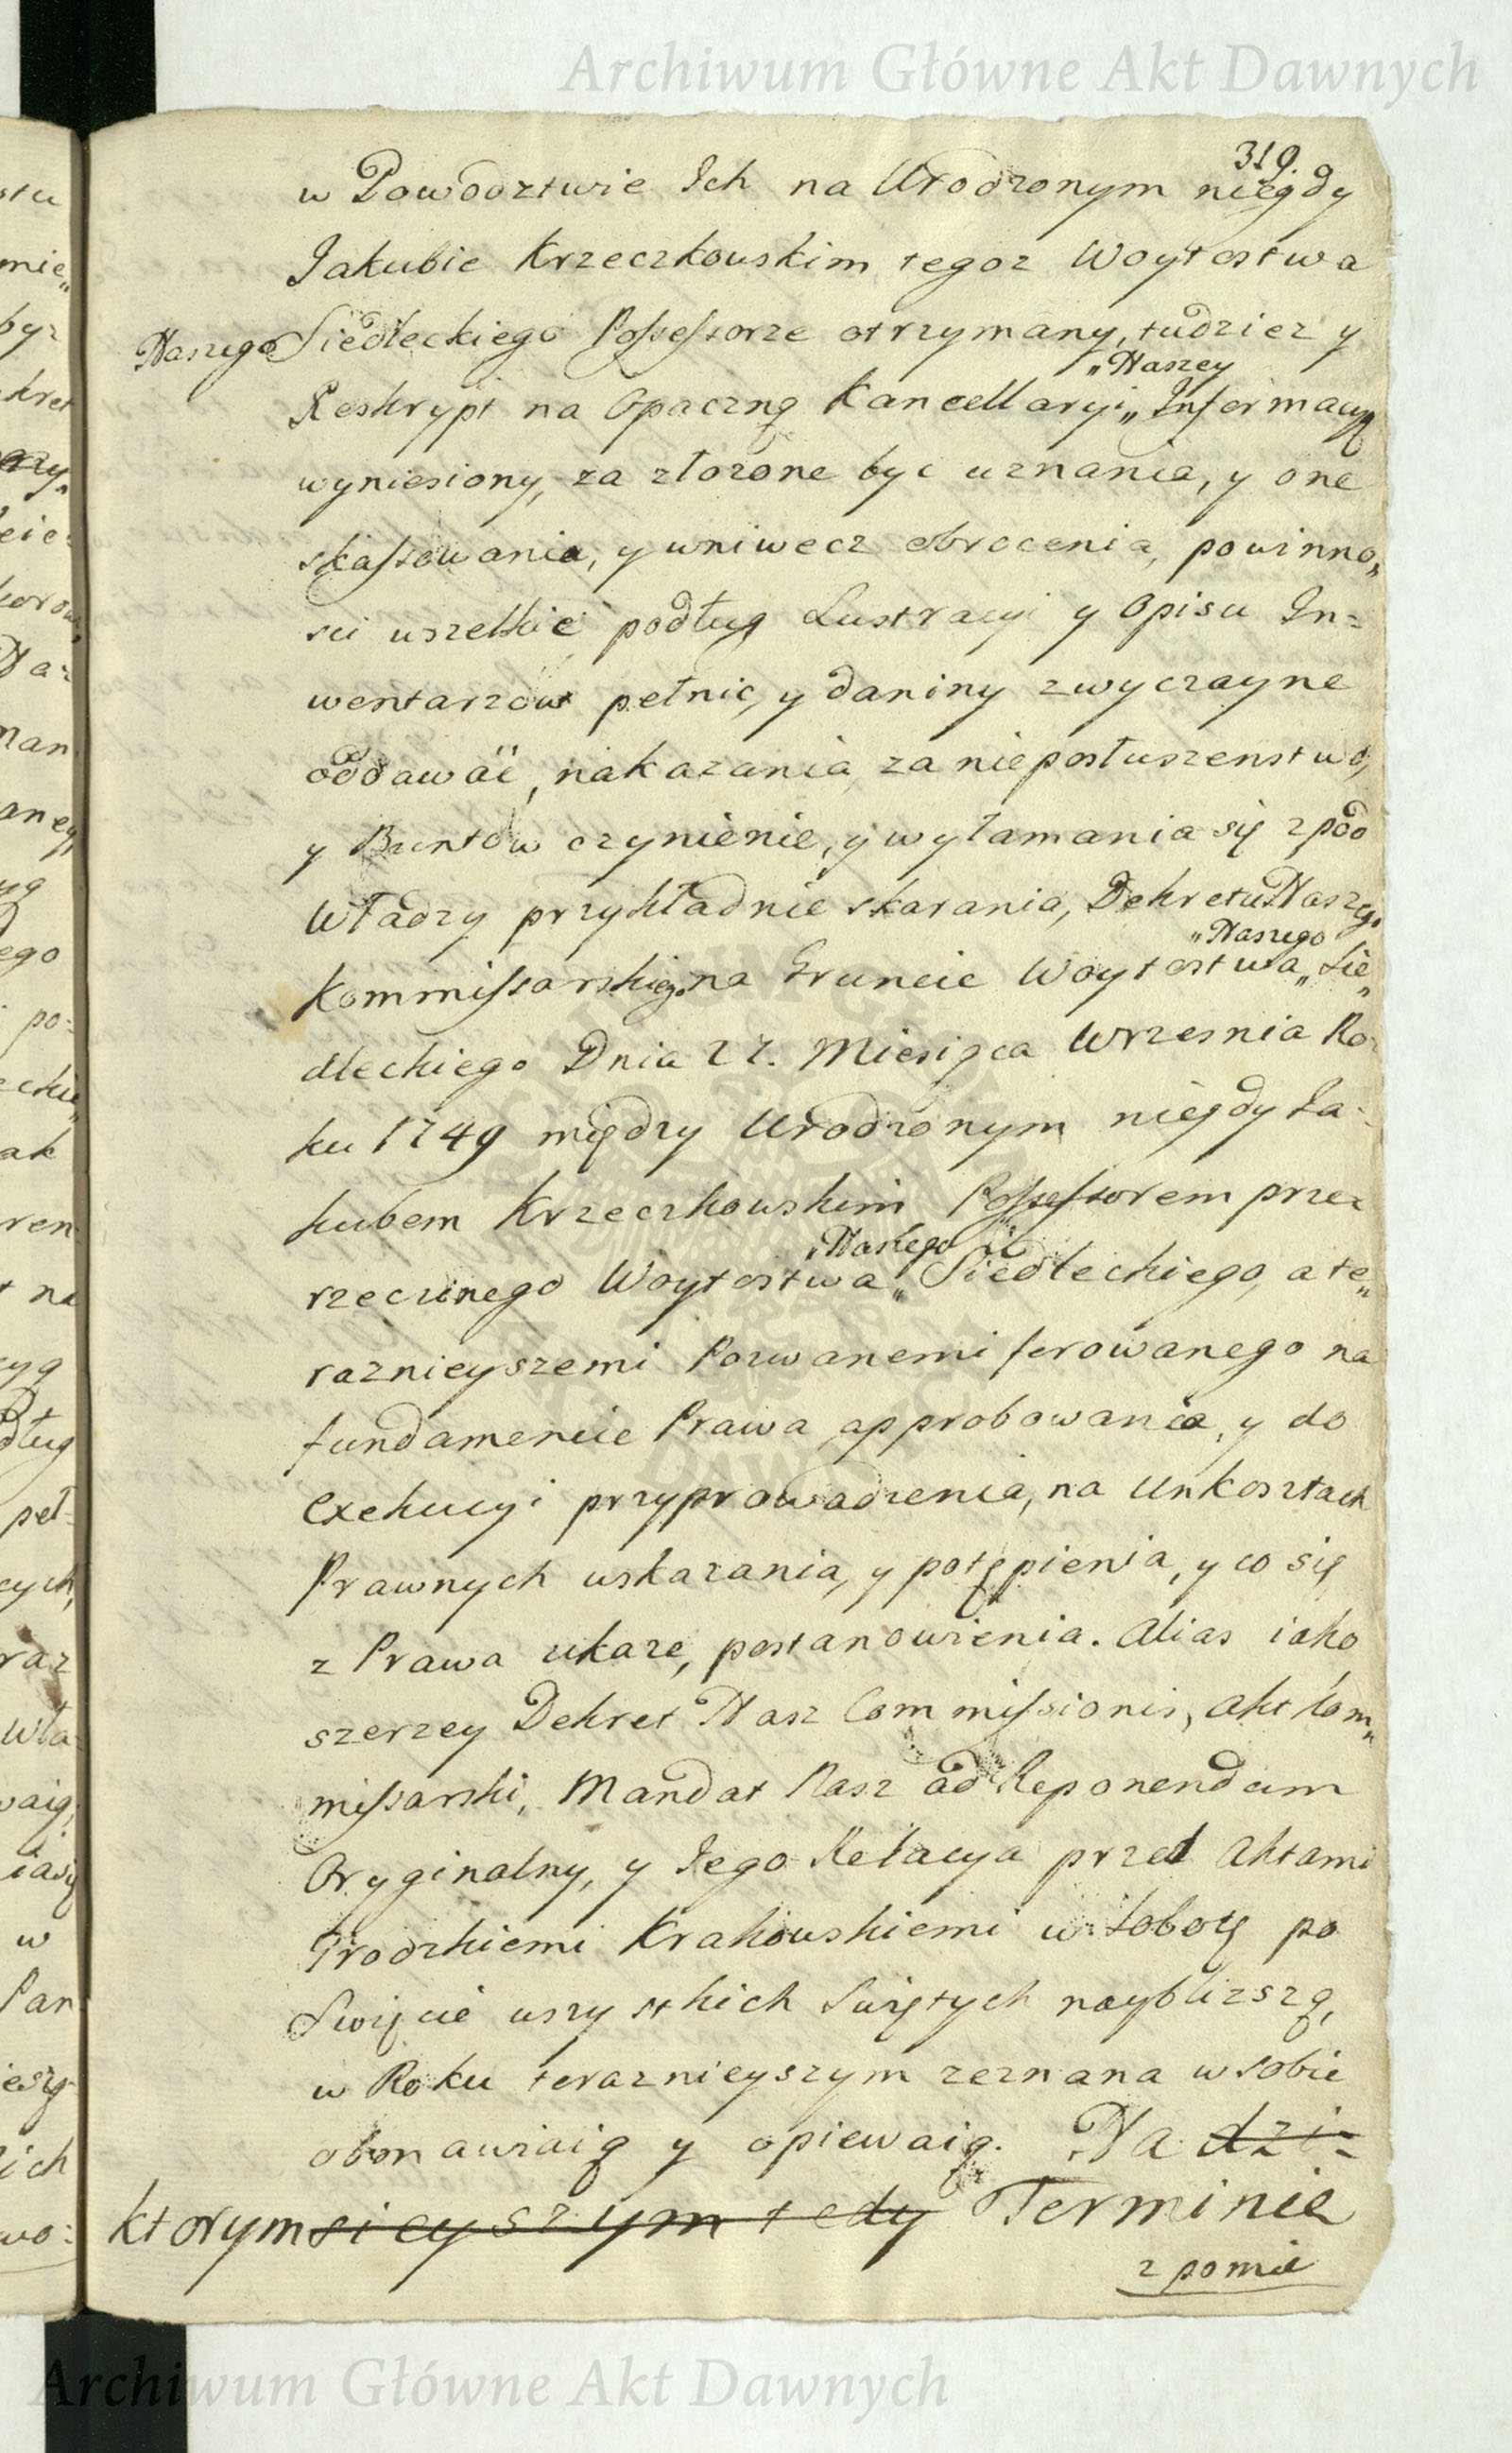 Archiwum Główne Akt Dawnych
319.
w Powodztwie Ich na Urodzonym niegdy
Jakubie Krzeczkowskim tegoz Woytostwa
Naszego Siedleckiego Possessorze otrzymany, tudziez y
"Naszey
Reskrypt na Opaczną Kancellaryi „ Informacyą
wyniesiony, za złozone byc uznania, y one
skassowania, y wniwecz obrocenia, powinno„
sci wszelkie podług Lustracyi y Opisu In=
wentarzow pełnic, y daniny zwyczayne
oddawać, nakazania, za nieposłuszenstwo,
y Buntow czynienie, y wyłamania się zpod
Władzy przykładnie skarania, Dekretu Naszego
"Naszego
Kommissarskiego na Gruncie Woytostwa „ Sie„
dleckiego Dnia 27. Miesiąca Wrzesnia Ro=
ku 1749 między Urodzonym niegdy Ja=
kubem Krzeczkowskim Possessorem prze=
"Naszego
rzeczonego Woytostwa „ Siedleckiego, a te„
raznieyszemi Pozwanemi ferowanego na
fundamencie Prawa approbowania, y do
Exekucyi przyprowadzenia, na Unkosztach
Prawnych wskazania, y potępienia, y co się
z Prawa ukaze, postanowienia. Alias iako
szerzey Dekret Nasz Commissionis, Akt Kom„
missarski, Mandat Nasz ad Reponendum
Oryginalny, y Jego Relacya przed Aktami
Grodzkiemi Krakowskiemi w Sobotę po
Swięcie wszystkich Swiętych nayblizszą,
w Roku teraznieyszym zeznana w sobie
obmawiaią y opiewaią. Na dzi=
ktorym sieyszym tedy Terminie
z pomie
Archiwum Główne Akt Dawnych